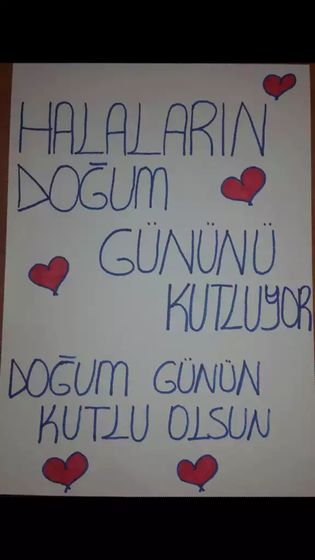 HALALARIN
DOĞUM
GÜNÜNÜ
KUTLUYOR
DOĞUM GÜNÜN
KUTLU OLSUN